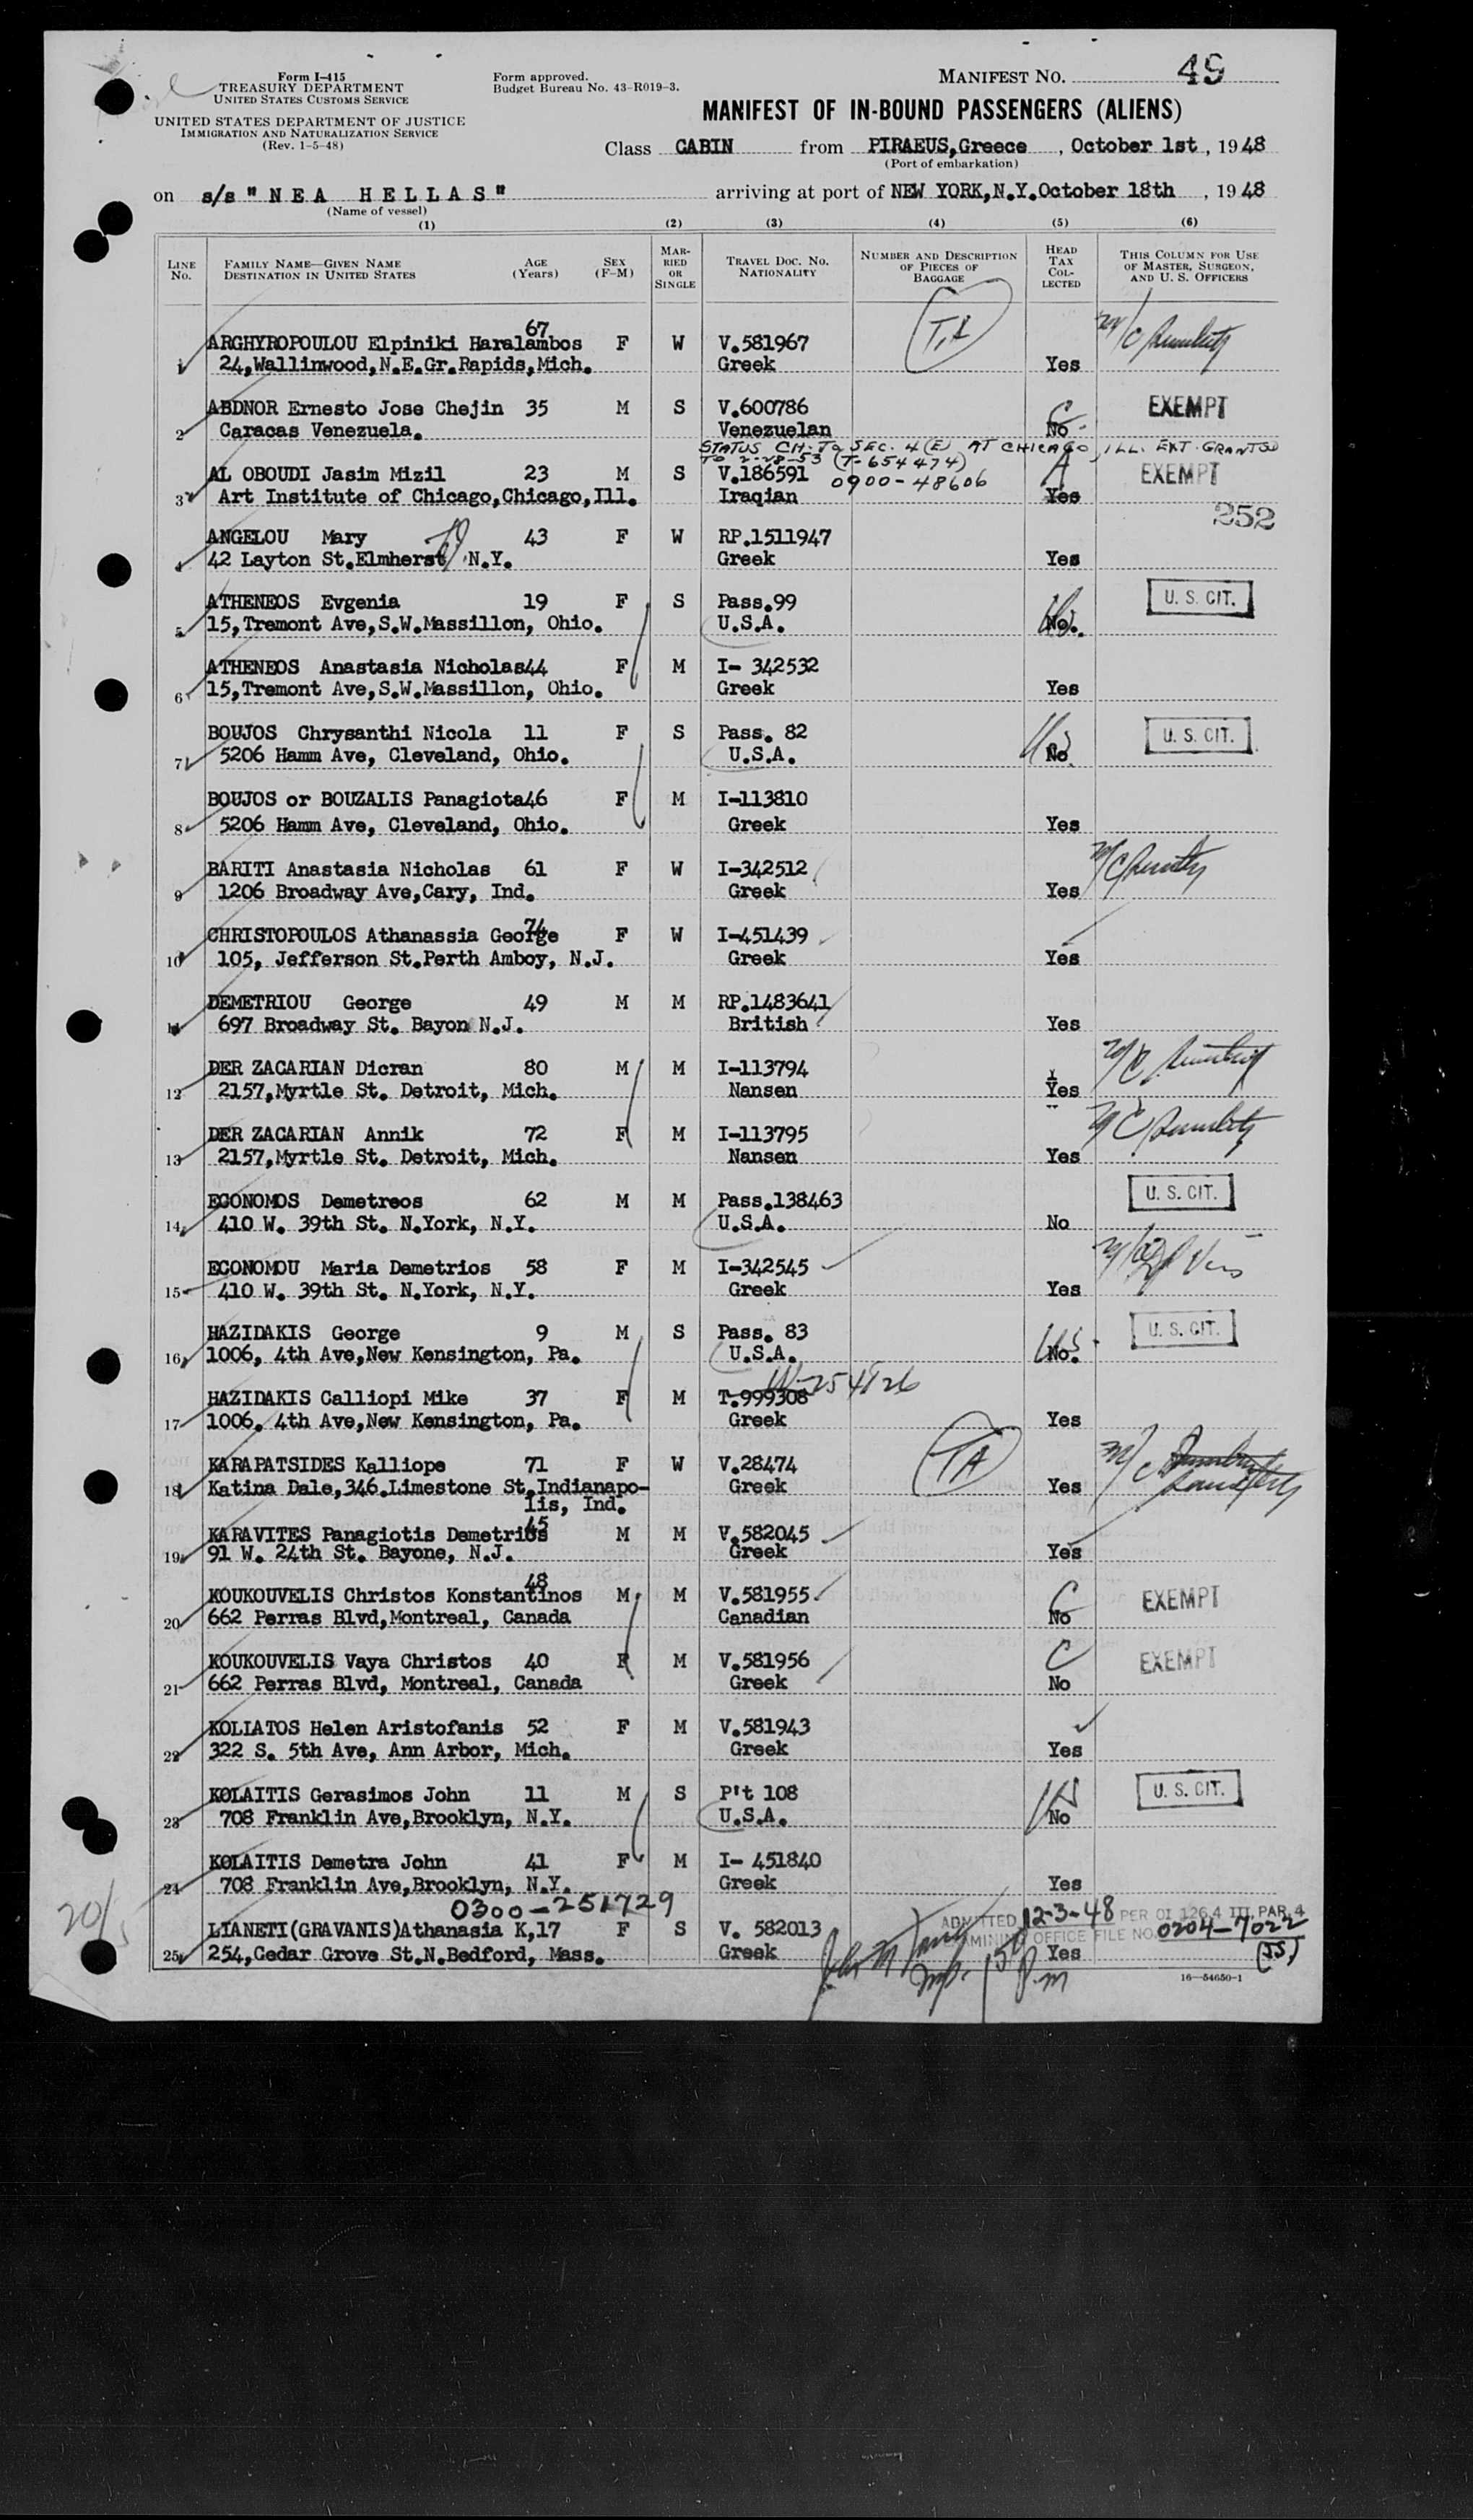 Form I-415
TREASURY DEPARTMENT
UNITED STATES CUSTOMS SERVICE
UNITED STATES DEPARTMENT OF JUSTICE
IMMIGRATION AND NATURALIZATION SERVICE
(Rev. 1-5-48)
Form approved.
Budget Bureau No. 43-R019-3.
MANIFEST NO. 49
MANIFEST OF IN-BOUND PASSENGERS (ALIENS)
Class CABIN from PIRAEUS,Greece, October 1st, 1948
(Port of embarkation)
on s/s "NEA HELLAS" arriving at port of NEW YORK,N.Y. October 18th, 1948
(Name of vessel)
(1) (2) (3) (4) (5) (6)
LINE No. FAMILY NAME—GIVEN NAME DESTINATION IN UNITED STATES AGE (Years) SEX (F-M) MARRIED OR SINGLE TRAVEL DOC. NO. NATIONALITY NUMBER AND DESCRIPTION OF PIECES OF BAGGAGE HEAD TAX COLLECTED THIS COLUMN FOR USE OF MASTER, SURGEON, AND U. S. OFFICERS
ARGHYROPOULOU Elpiniki Haralambos 67 F W V.581967 T.A
1 24,Wallinwood,N.E.Gr.Rapids,Mich. Greek Yes
ABDNOR Ernesto Jose Chejin 35 M S V.600786 EXEMPT
2 Caracas Venezuela. Venezuelan No
STATUS CH. TO SEC. 4(E) AT CHICAGO, ILL. EXT. GRANTED
TO 2-28-53 (T-654474)
AL OBOUDI Jasim Mizil 23 M S V.186591 0900-48606 A EXEMPT
3 Art Institute of Chicago,Chicago,Ill. Iraqian Yes
252
ANGELOU Mary 43 F W RP.1511947
4 42 Layton St.Elmherst N.Y. Greek Yes
ATHENEOS Evgenia 19 F S Pass.99 U. S. CIT.
5 15,Tremont Ave,S.W.Massillon, Ohio. U.S.A. No.
ATHENEOS Anastasia Nicholas 44 F M I- 342532
6 15,Tremont Ave,S.W.Massillon, Ohio. Greek Yes
BOUJOS Chrysanthi Nicola 11 F S Pass. 82 U. S. CIT.
7 5206 Hamm Ave, Cleveland, Ohio. U.S.A. No
BOUJOS or BOUZALIS Panagiota 46 F M I-113810
8 5206 Hamm Ave, Cleveland, Ohio. Greek Yes
BARITI Anastasia Nicholas 61 F W I-342512
9 1206 Broadway Ave,Cary, Ind. Greek Yes
CHRISTOPOULOS Athanassia George 74 F W I-451439
10 105, Jefferson St.Perth Amboy, N.J. Greek Yes
DEMETRIOU George 49 M M RP.1483641
11 697 Broadway St. Bayon N.J. British Yes
DER ZACARIAN Dicran 80 M M I-113794
12 2157,Myrtle St. Detroit, Mich. Nansen Yes
DER ZACARIAN Annik 72 F M I-113795
13 2157,Myrtle St. Detroit, Mich. Nansen Yes
ECONOMOS Demetreos 62 M M Pass.138463 U. S. CIT.
14 410 W. 39th St. N.York, N.Y. U.S.A. No
ECONOMOU Maria Demetrios 58 F M I-342545
15 410 W. 39th St. N.York, N.Y. Greek Yes
HAZIDAKIS George 9 M S Pass. 83 U. S. CIT.
16 1006, 4th Ave,New Kensington, Pa. U.S.A. No.
HAZIDAKIS Calliopi Mike 37 F M T.999308
17 1006, 4th Ave,New Kensington, Pa. Greek Yes
KARAPATSIDES Kalliope 71 F W V.28474 TA
18 Katina Dale,346.Limestone St,Indianapo- Greek Yes
lis, Ind.
KARAVITES Panagiotis Demetrios 45 M M V.582045
19 91 W. 24th St. Bayone, N.J. Greek Yes
KOUKOUVELIS Christos Konstantinos 48 M M V.581955 C EXEMPT
20 662 Perras Blvd,Montreal, Canada Canadian No
KOUKOUVELIS Vaya Christos 40 F M V.581956 C EXEMPT
21 662 Perras Blvd, Montreal, Canada Greek No
KOLIATOS Helen Aristofanis 52 F M V.581943
22 322 S. 5th Ave, Ann Arbor, Mich. Greek Yes
KOLAITIS Gerasimos John 11 M S P't 108 U. S. CIT.
23 708 Franklin Ave,Brooklyn, N.Y. U.S.A. No
KOLAITIS Demetra John 41 F M I- 451840
24 708 Franklin Ave,Brooklyn, N.Y. Greek Yes
0300-251729
LIANETI(GRAVANIS)Athanasia K,17 F S V. 582013 ADMITTED 12-3-48 PER OI 126.4 III PAR. 4
EXAMINING OFFICE FILE NO. 0204-7022
25 254,Cedar Grove St.N.Bedford, Mass. Greek Yes (JS)
20/5
16—54650-1